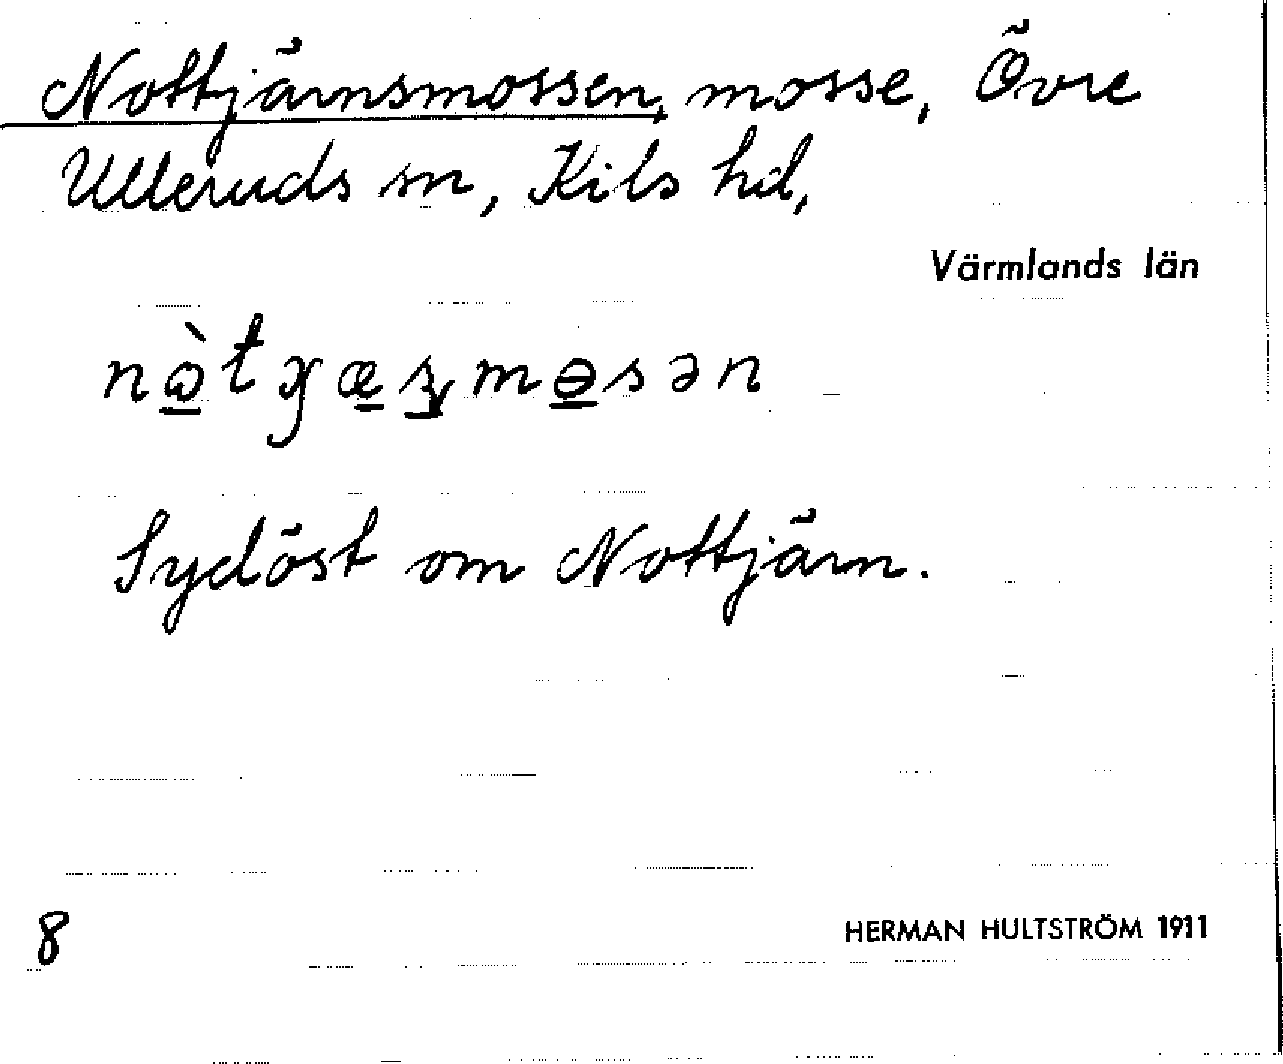 Nottjärnsmossen, mosse, Övre
Ulleruds sn, Kils hd,
Värmlands län
Sydöst om Nottjärn.
8
HERMAN HULTSTRÖM 1911